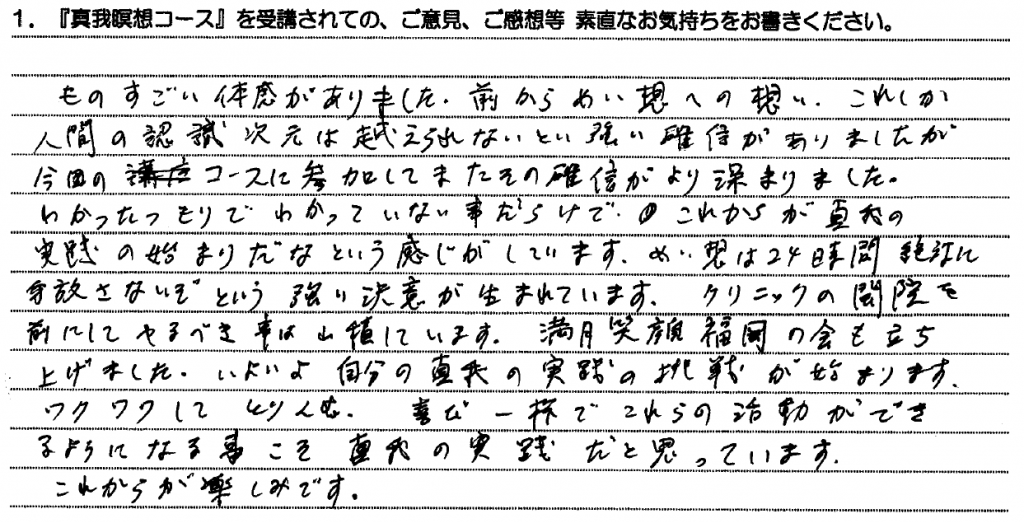 1. 『真我瞑想コース』を受講されての、ご意見、ご感想等 素直なお気持ちをお書きください。
ものすごい体感がありました。前からめい想への想い、これしか
人間の認識次元は越えられないとい強い確信がありましたが
今回の コースに参加してまたその確信がより深まりました。
わかったつもりでわかっていない事だらけで、これからが真我の
実践の始まりだなという感じがしています。めい想は24時間絶対に
手放さないぞという強い決意が生まれています。クリニックの開院を
前にしてやるべき事は山積しています。満月笑顔福岡の会も立ち
上げました。いよいよ自分の真我の実践の挑戦が始まります。
ワクワクしてとりくむ。喜び一杯でこれらの活動ができ
るようになる事こそ真我の実践だと思っています。
これからが楽しみです。